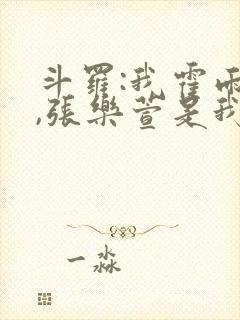 斗羅:我霍雨
,張樂萱是我
一淼